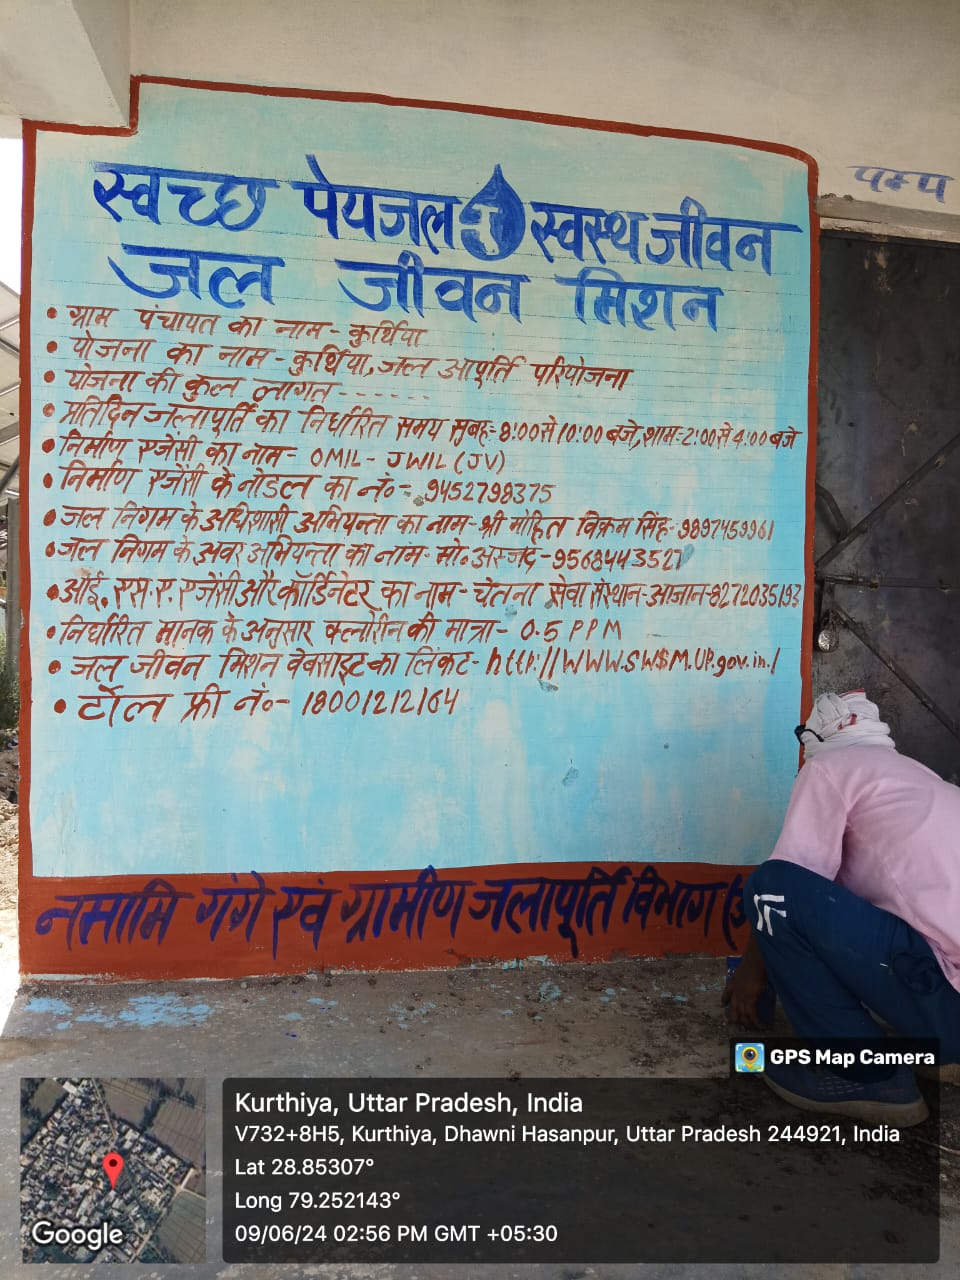 स्वच्छ पेयजल स्वस्थ जीवन
जल जीवन मिशन
पम्प
• ग्राम पंचायत का नाम - कुर्थिया
• योजना का नाम - कुर्थिया, जल आपूर्ति परियोजना
• योजना की कुल लागत - - - - - -
• प्रतिदिन जलापूर्ति का निर्धारित समय सुबह:- 8:00 से 10:00 बजे, शाम:- 2:00 से 4:00 बजे
• निर्माण एजेंसी का नाम - OMIL - JWIL (JV)
• निर्माण एजेंसी के नोडल का नं० - 9452798375
• जल निगम के अधिशासी अभियन्ता का नाम - श्री मोहित विक्रम सिंह - 9897459961
• जल निगम के अवर अभियन्ता का नाम - मो. अस्जद - 9568443527
• आई. एस. ए. एजेंसी और कॉर्डिनेटर का नाम - चेतना सेवा संस्थान - आजान - 8272035193
• निर्धारित मानक के अनुसार क्लोरीन की मात्रा - 0.5 PPM
• जल जीवन मिशन वेबसाइट का लिंकट - http://WWW.SWSM.UP.gov.in./
• टोल फ्री नं० - 18001212164
नमामि गंगे एवं ग्रामीण जलापूर्ति विभाग (
GPS Map Camera
Kurthiya, Uttar Pradesh, India
V732+8H5, Kurthiya, Dhawni Hasanpur, Uttar Pradesh 244921, India
Lat 28.85307°
Long 79.252143°
09/06/24 02:56 PM GMT +05:30
Google